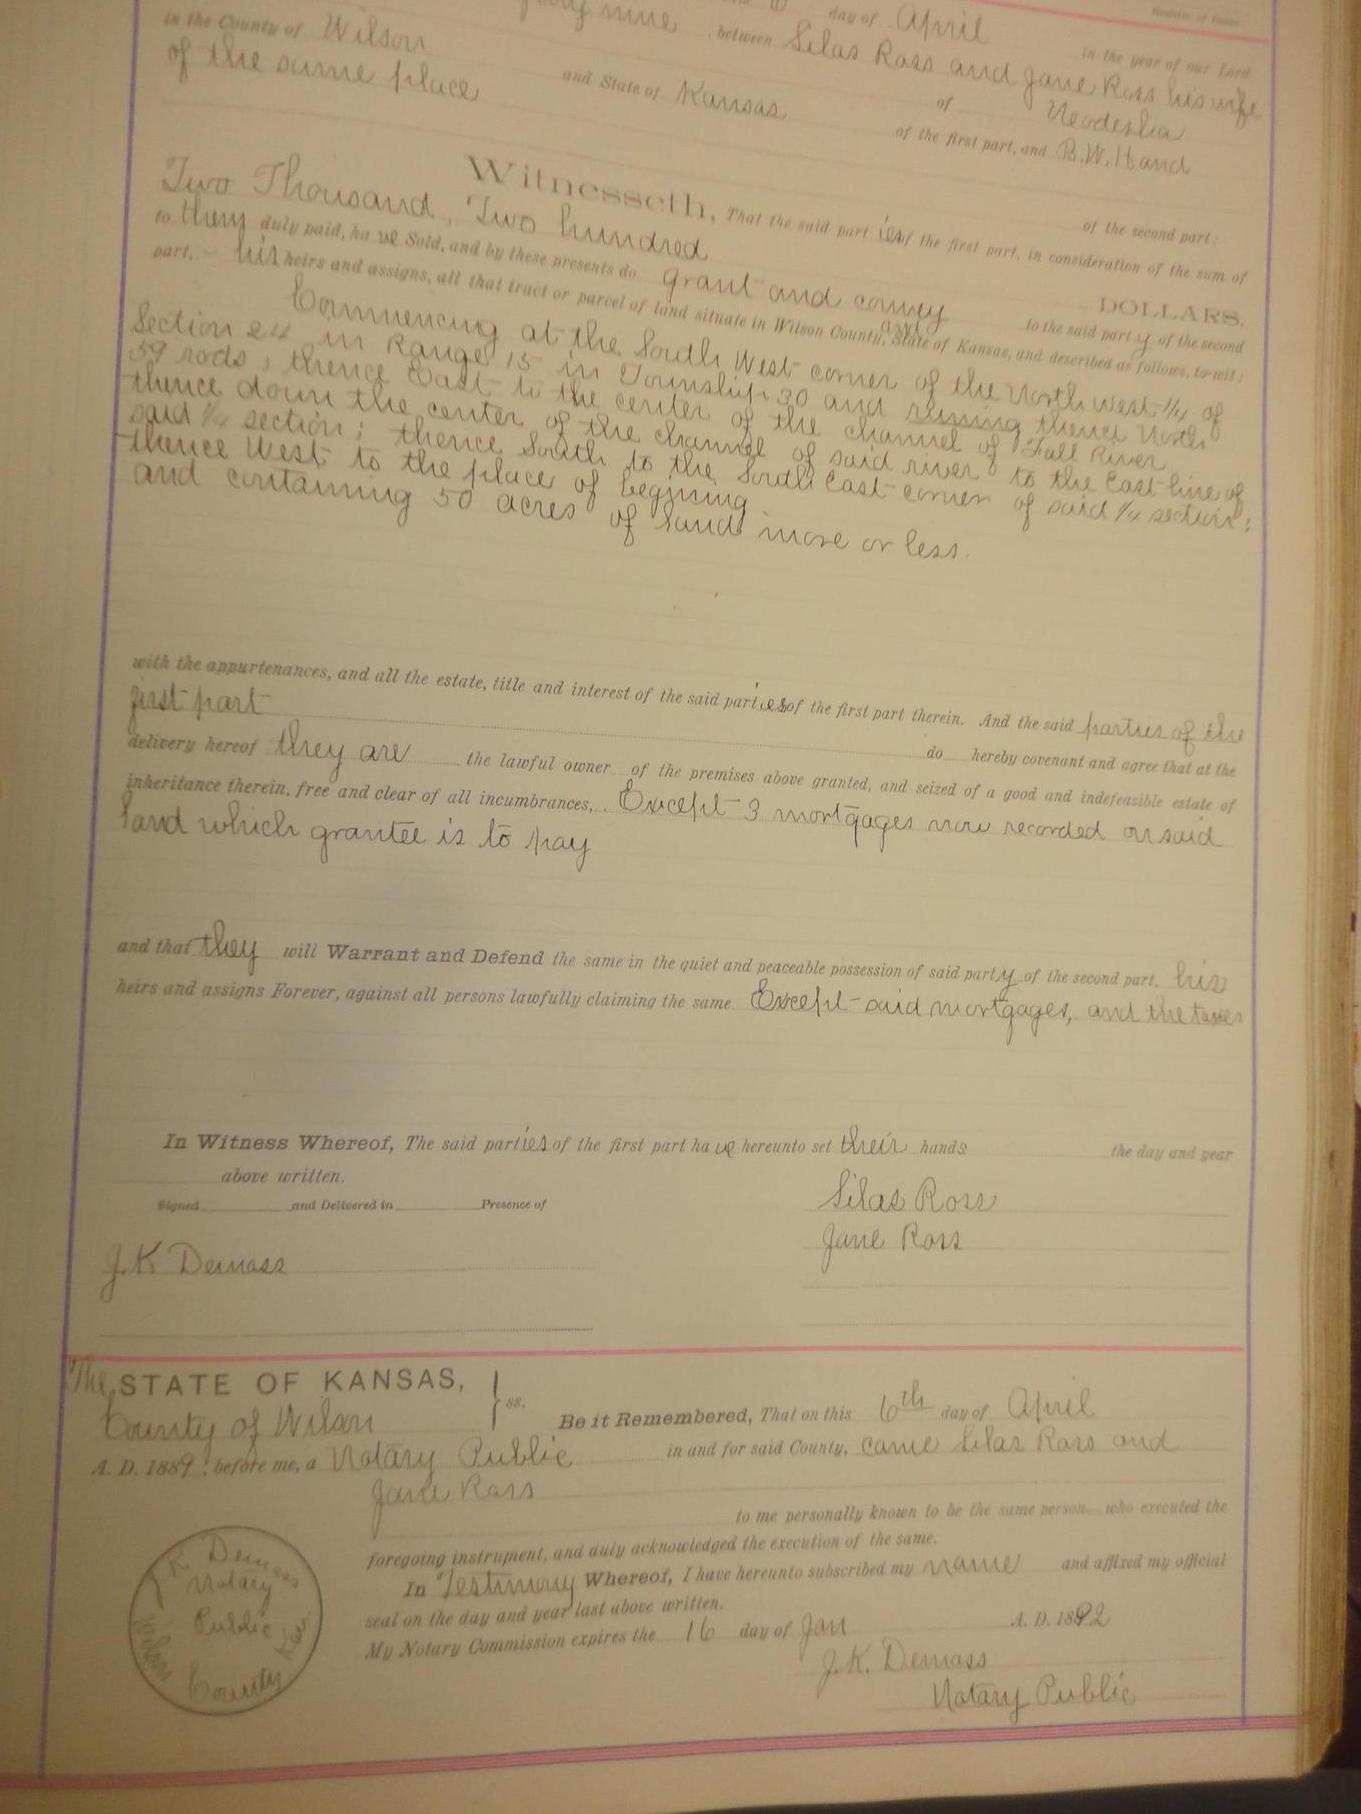 day of April
nine between Silas Ross and Jane Ross his wife in the year of our Lord
in the County of Wilson and State of Kansas of Neodesha
of the same place of the first part, and B.W. Hand
of the second part:
Witnesseth, That the said parties of the first part, in consideration of the sum of
Two Thousand, Two hundred DOLLARS,
to them duly paid, have Sold, and by these presents do grant and convey to the said party of the second
part, his heirs and assigns, all that tract or parcel of land situate in Wilson County, and State of Kansas, and described as follows, to-wit:
Commencing at the South West corner of the North West 1/4 of
Section 24 in Range 15 in Township 30 and running thence North
59 rods; thence East to the center of the channel of Fall River
thence down the center of the channel of said river to the East line of
said 1/4 section; thence South to the South East corner of said 1/4 section;
thence West to the place of begining
and containing 50 acres of land more or less.
with the appurtenances, and all the estate, title and interest of the said parties of the first part therein. And the said parties of the
first part do hereby covenant and agree that at the
delivery hereof they are the lawful owner of the premises above granted, and seized of a good and indefeasible estate of
inheritance therein, free and clear of all incumbrances, Except 3 mortgages now recorded on said
land which grantee is to pay
and that they will Warrant and Defend the same in the quiet and peaceable possession of said party of the second part, his
heirs and assigns Forever, against all persons lawfully claiming the same Except said mortgages, and the taxes
In Witness Whereof, The said parties of the first part have hereunto set their hands the day and year
above written.
Signed and Delivered in Presence of
Silas Ross
Jane Ross
J.K. Demoss
The STATE OF KANSAS, } ss.
County of Wilson
Be it Remembered, That on this 6th day of April
A. D. 1889, before me, a Notary Public in and for said County, came Silas Ross and
Jane Ross
to me personally known to be the same person who executed the
foregoing instrument, and duly acknowledged the execution of the same.
In Testimony Whereof, I have hereunto subscribed my name and affixed my official
seal on the day and year last above written.
My Notary Commission expires the 16 day of Jan A. D. 1892
J.K. Demoss
Notary Public
J.K Demoss
Notary
Public
Wilson County Kas.